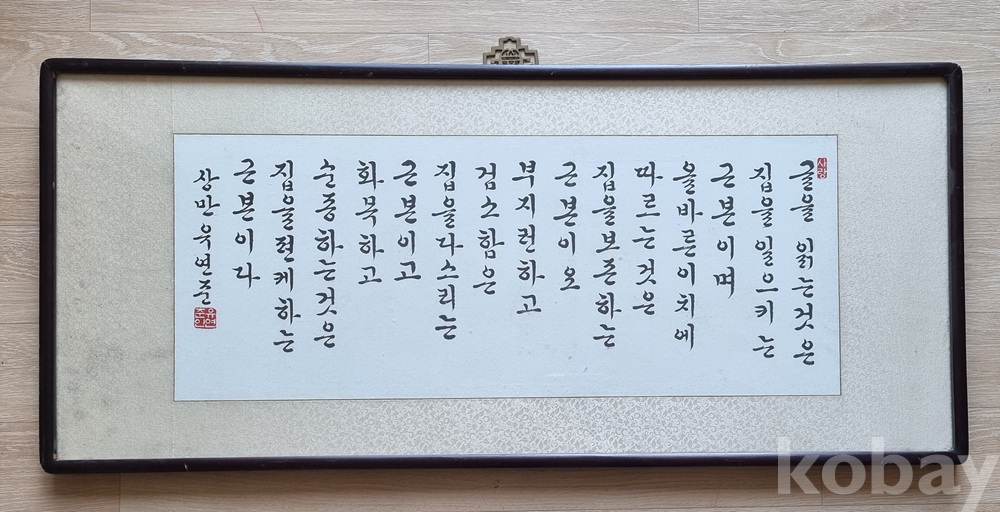 사랑
글을 읽는것은
집을일으키는
근본이며
올바른이치에
따르는것은
집을보존하는
근본이오
부지런하고
검소함은
집을다스리는
근본이고
화목하고
순종하는것은
집을편케하는
근본이다
상만육연준
kobay